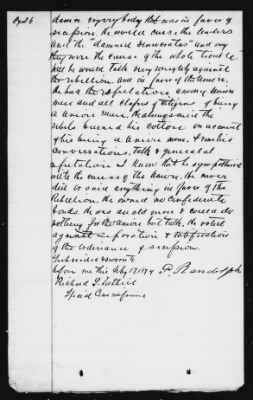 Dpst 6
damn everybody that was in favor of
secession. He would curse the leaders
and the "damned democrats" and say
they were the cause of the whole trouble.
He talked very bitterly against
the rebellion and in favor of the Union.
He had the reputation among Union
men and all classes of citizens of being
a union man. He always said the
rebels burned his cotton on account
of his being a Union man, &
conversation, talk & general
reputation I know that he sympathized
with the cause of the Union. He never
did or said anything in favor of the
Rebellion. He owned no Confederate
bonds. He was an old man & could do
nothing for the Union but talk. He voted
against separation & ratification
of the Ordinance of secession.
Subscribed & sworn to
before me this July 17 1874 P. Randolph
Richard
Special Commissioner